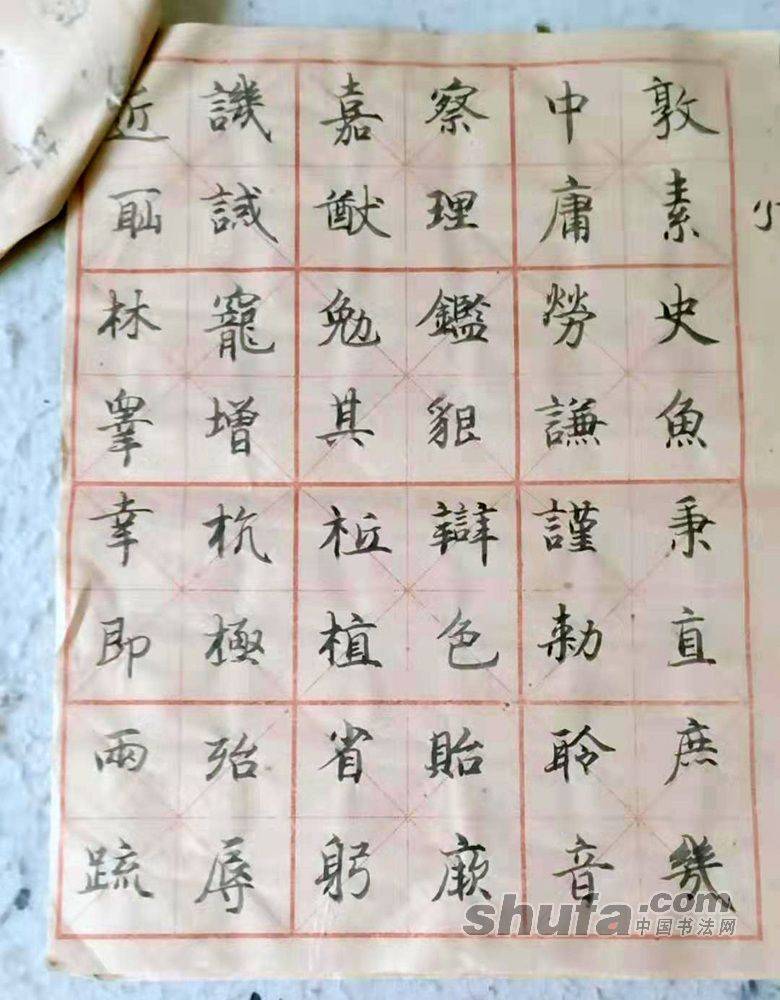 敦素史魚秉直庶幾
中庸勞謙謹勅聆音
察理鑑貌辯色貽厥
嘉猷勉其祗植省躬
譏誡寵增抗極殆辱
近耻林皋幸即兩疏
shufa.com
中国书法网